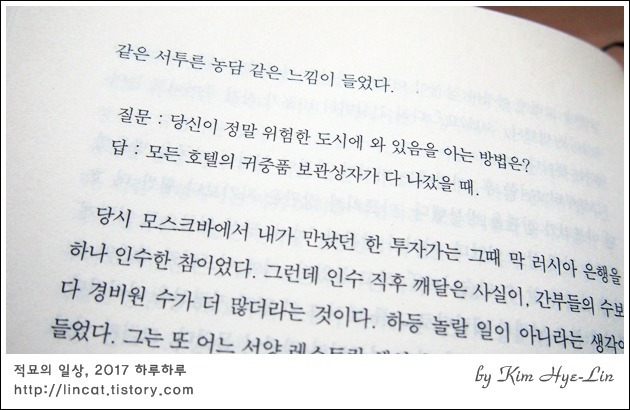 같은 서투른 농담 같은 느낌이 들었다.
질문 : 당신이 정말 위험한 도시에 와 있음을 아는 방법은?
답 : 모든 호텔의 귀중품 보관상자가 다 나갔을 때.
당시 모스크바에서 내가 만났던 한 투자가는 그때 막 러시아 은행을
하나 인수한 참이었다. 그런데 인수 직후 깨달은 사실이, 간부들의 수보
다 경비원 수가 더 많더라는 것이다. 하등 놀랄 일이 아니라는 생각이
들었다. 그는 또 어느 서양
적묘의 일상, 2017 하루하루
http://lincat.tistory.com
by Kim Hye-Lin